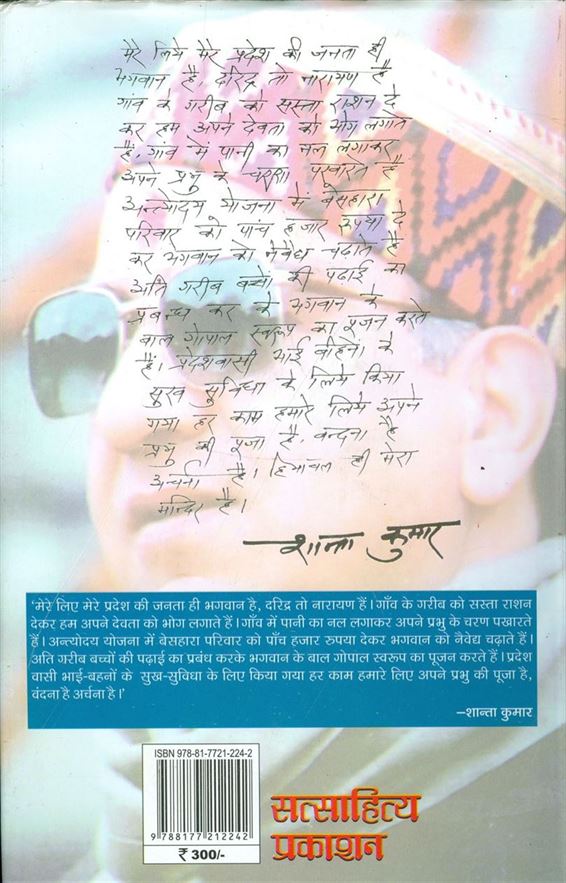 मेरे लिये मेरे प्रदेश की जनता ही
भगवान है, दरिद्र तो नारायण है
गांव के गरीब को सस्ता राशन दे
कर हम अपने देवता को भोग लगाते
हैं, गांव में पानी का नल लगाकर
अपने प्रभु के चरण पखारते हैं
अन्त्योदय योजना में बेसहारा
परिवार को पांच हजार रूपया दे
कर भगवान को नैवैद्य चढ़ाते हैं
अति गरीब बच्चों की पढ़ाई का
प्रबन्ध कर के भगवान के
बाल गोपाल स्वरूप का पूजन करते
हैं। प्रदेशवासी भाई बहिनों के
सुख सुविधा के लिये किया
गया हर काम हमारे लिये अपने
प्रभु की पूजा है, वन्दना है
अर्चना है। हिमाचल ही मेरा
मन्दिर है।
शान्ता कुमार
'मेरे लिए मेरे प्रदेश की जनता ही भगवान है, दरिद्र तो नारायण हैं। गाँव के गरीब को सस्ता राशन
देकर हम अपने देवता को भोग लगाते हैं। गाँव में पानी का नल लगाकर अपने प्रभु के चरण पखारते
हैं। अन्त्योदय योजना में बेसहारा परिवार को पाँच हजार रुपया देकर भगवान को नैवेद्य चढ़ाते हैं।
अति गरीब बच्चों की पढ़ाई का प्रबंध करके भगवान के बाल गोपाल स्वरूप का पूजन करते हैं। प्रदेश
वासी भाई-बहनों के सुख-सुविधा के लिए किया गया हर काम हमारे लिए अपने प्रभु की पूजा है,
वंदना है अर्चना है।'
–शान्ता कुमार
ISBN 978-81-7721-224-2
9 788177 212242
₹ 300/-
सत्साहित्य
प्रकाशन